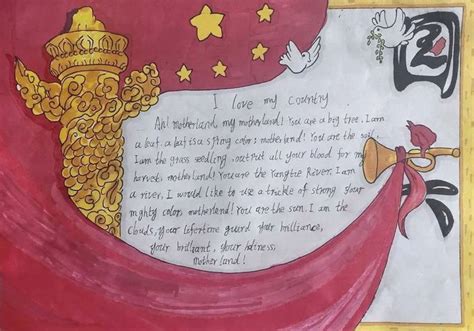 I love my country
Ah! motherland, my motherland! You are a big tree. I am
a leaf. a leaf is a spring color; motherland! You are the soil.
I am the grass seedling, outfit all your blood for my
harvest, motherland! You are the Yangtze River. I am
a river. I would like to use a trickle of strong your
mighty color, motherland! You are the sun. I am the
clouds, your wfortone guard your brilliance,
your brilliant, your holiness,
motherland!
国